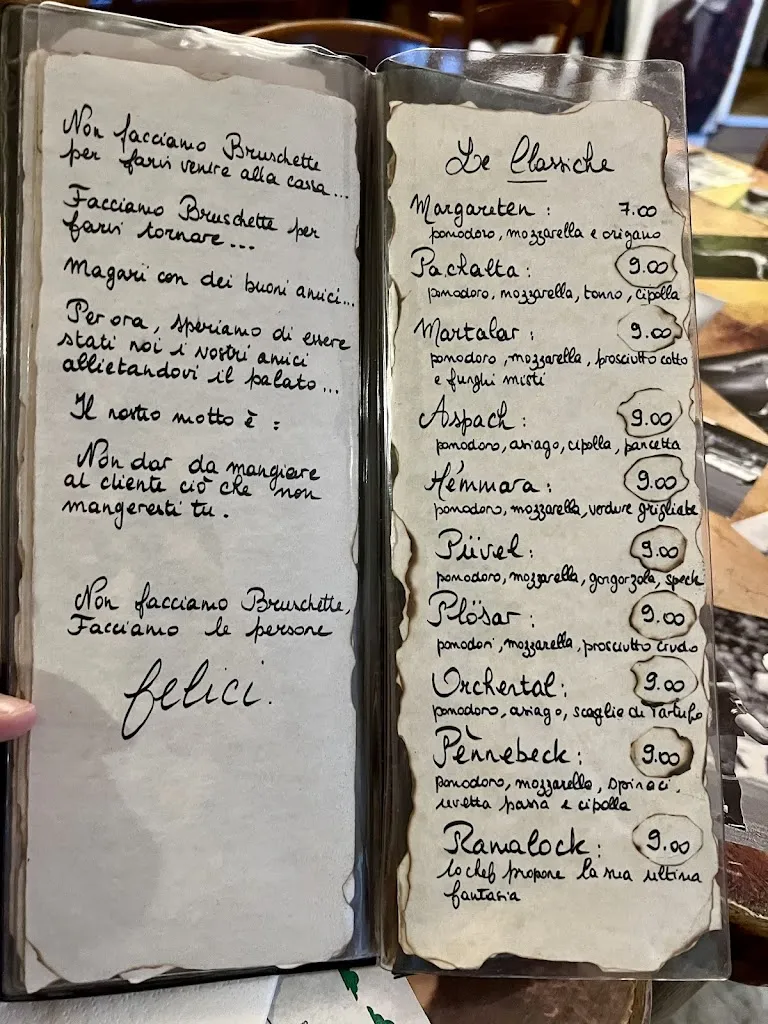 Non facciamo Bruschette
per farvi venire alla cassa...
Facciamo Bruschette per
farvi tornare...
Magari con dei buoni amici...
Per ora, speriamo di essere
stati noi i vostri amici
allietandovi il palato...
Il nostro motto è :
Non dar da mangiare
al cliente ciò che non
mangeresti tu.
Non facciamo Bruschette,
Facciamo le persone
felici.
Le Classiche
Margareten : 7.00
pomodoro, mozzarella e origano
Pachalta : 9.00
pomodoro, mozzarella, tonno, cipolla
Martalar : 9.00
pomodoro, mozzarella, prosciutto cotto
e funghi misti
Aspach : 9.00
pomodoro, asiago, cipolla, pancetta
Hémmara : 9.00
pomodoro, mozzarella, verdure grigliate
Püvel : 9.00
pomodoro, mozzarella, gorgorzola, speck
Plösar : 9.00
pomodori, mozzarella, prosciutto crudo
Orchental : 9.00
pomodoro, asiago, scaglie di Tartufo
Pènnebeck : 9.00
pomodoro, mozzarella, spinaci,
uvetta passa e cipolla
Ramalock : 9.00
lo chef propone la sua ultima
fantasia